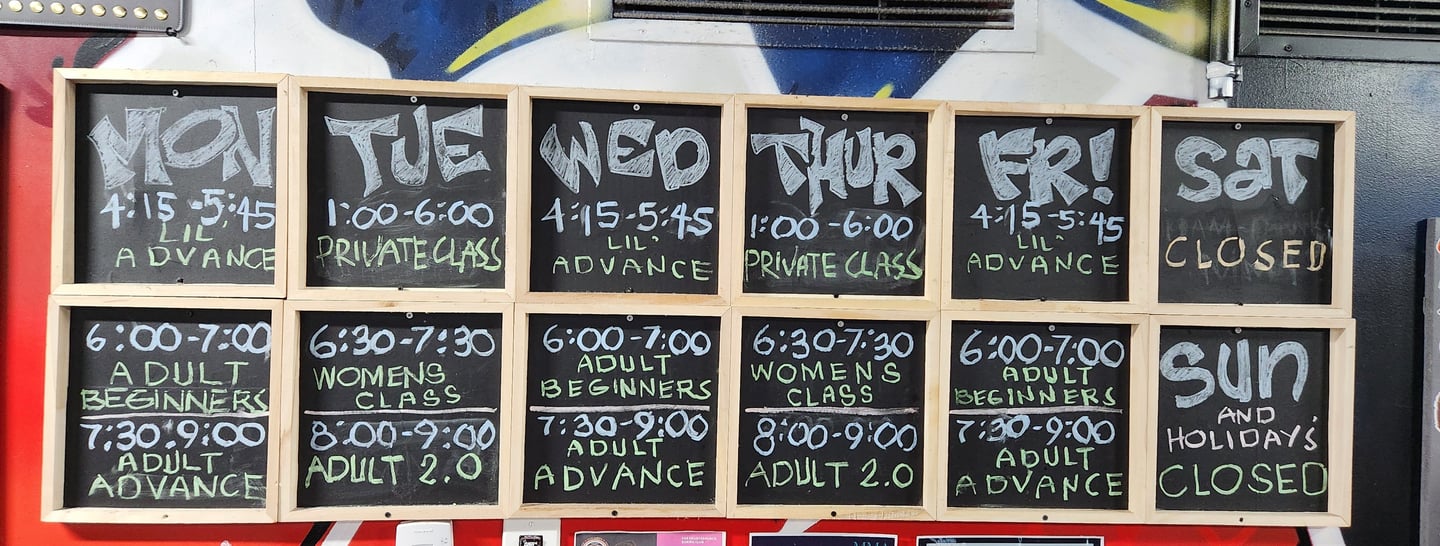 MON
4:15-5:45
LIL'
ADVANCE
6:00-7:00
ADULT
BEGINNERS
7:30-9:00
ADULT
ADVANCE
TUE
1:00-6:00
PRIVATE CLASS
6:30-7:30
WOMENS
CLASS
8:00-9:00
ADULT 2.0
WED
4:15-5:45
LIL'
ADVANCE
6:00-7:00
ADULT
BEGINNERS
7:30-9:00
ADULT
ADVANCE
THUR
1:00-6:00
PRIVATE CLASS
6:30-7:30
WOMENS
CLASS
8:00-9:00
ADULT 2.0
FRI
4:15-5:45
LIL'
ADVANCE
6:00-7:00
ADULT
BEGINNERS
7:30-9:00
ADULT
ADVANCE
SaT
CLOSED
Sun
AND
HOLIDAY'S
CLOSED